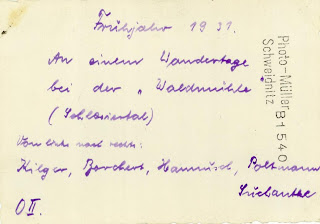 Frühjahr 1931.
An einem Wandertage
bei der „Waldmühle
(Schlesiertal)
Von links nach rechts:
Kilger, Borchert, Hannusch, Poltmann
Suchantke
O II.
Photo-Müller
Schweidnitz
B1540